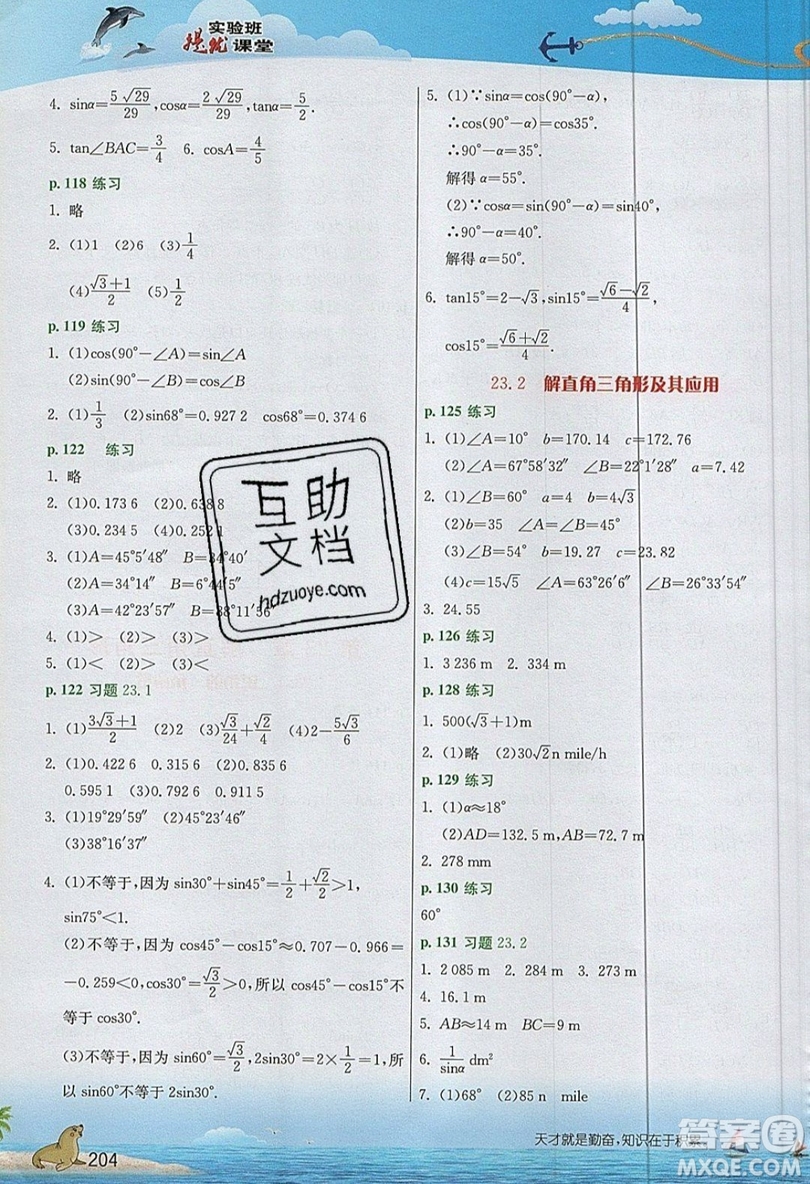 实验班
提优课堂
4. sinα=5√29/29, cosα=2√29/29, tanα=5/2.
5. tan∠BAC=3/4 6. cosA=4/5
p. 118 练习
1. 略
2. (1)1 (2)6 (3)1/4
(4)(√3+1)/2 (5)1/2
p. 119 练习
1. (1)cos(90°-∠A)=sin∠A
(2)sin(90°-∠A)=cos∠A
2. (1)1/3 (2)sin68°=0.927 2 cos68°=0.374 6
p. 122 练习
1. 略
2. (1)0.173 6 (2)0.638 8
(3)0.234 5 (4)0.252 1
3. (1)A=45°5′48″ B=34°40′
(2)A=34°14″ B=6°44′5″
(3)A=42°23′57″ B=88°11′56″
4. (1)> (2)> (3)>
5. (1)< (2)> (3)<
p. 122 习题 23.1
1. (1)(3√3+1)/2 (2)2 (3)√3/24+√2/4 (4)2-5√3/6
2. (1)0.422 6 0.315 6 (2)0.835 6
0.595 1 (3)0.792 6 0.911 5
3. (1)19°29′59″ (2)45°23′46″
(3)38°16′37″
4. (1)不等于,因为 sin30°+sin45°=1/2+√2/2>1,
sin75°<1.
(2)不等于,因为 cos45°-cos15°≈0.707-0.966=
-0.259<0, cos30°=√3/2>0,所以 cos45°-cos15°不
等于 cos30°.
(3)不等于,因为 sin60°=√3/2, 2sin30°=2×1/2=1,所
以 sin60°不等于 2sin30°.
204
5. (1)∵sinα=cos(90°-α),
∴cos(90°-α)=cos35°.
∴90°-α=35°.
解得 α=55°.
(2)∵cosα=sin(90°-α)=sin40°,
∴90°-α=40°.
解得 α=50°.
6. tan15°=2-√3, sin15°=(√6-√2)/4,
cos15°=(√6+√2)/4.
23.2 解直角三角形及其应用
p. 125 练习
1. (1)∠A=10° b=170.14 c=172.76
(2)∠A=67°58′58″ ∠B=22°1′2″ a=7.42
2. (1)∠B=60° a=4 b=4√3
(2)b=35 ∠A=∠B=45°
(3)∠A=40° b=19.27 c=23.82
(4)c=15√5 ∠A=63°26′6″ ∠B=26°33′54″
3. 24.55
p. 126 练习
1. 3 236 m
p. 128 练习
1. 500(√3+1)m
2. (1)略 (2)30√2n mile/h
p. 129 练习
1. (1)α≈18°
(2)AD=132.5 m, AB=72.7 m
2. 278 mm
p. 130 练习
60°
p. 131 习题 23.2
1. 2 085 m 2. 284 m 3. 273 m
4. 16.1 m
5. AB≈14 m BC=9 m
6. 1/sinα dm²
7. (1)68° (2)85 n mile
天才就是勤奋,知识在于积累。
互助
文档
hdzuoye.com
答案圈
MXQE.COM